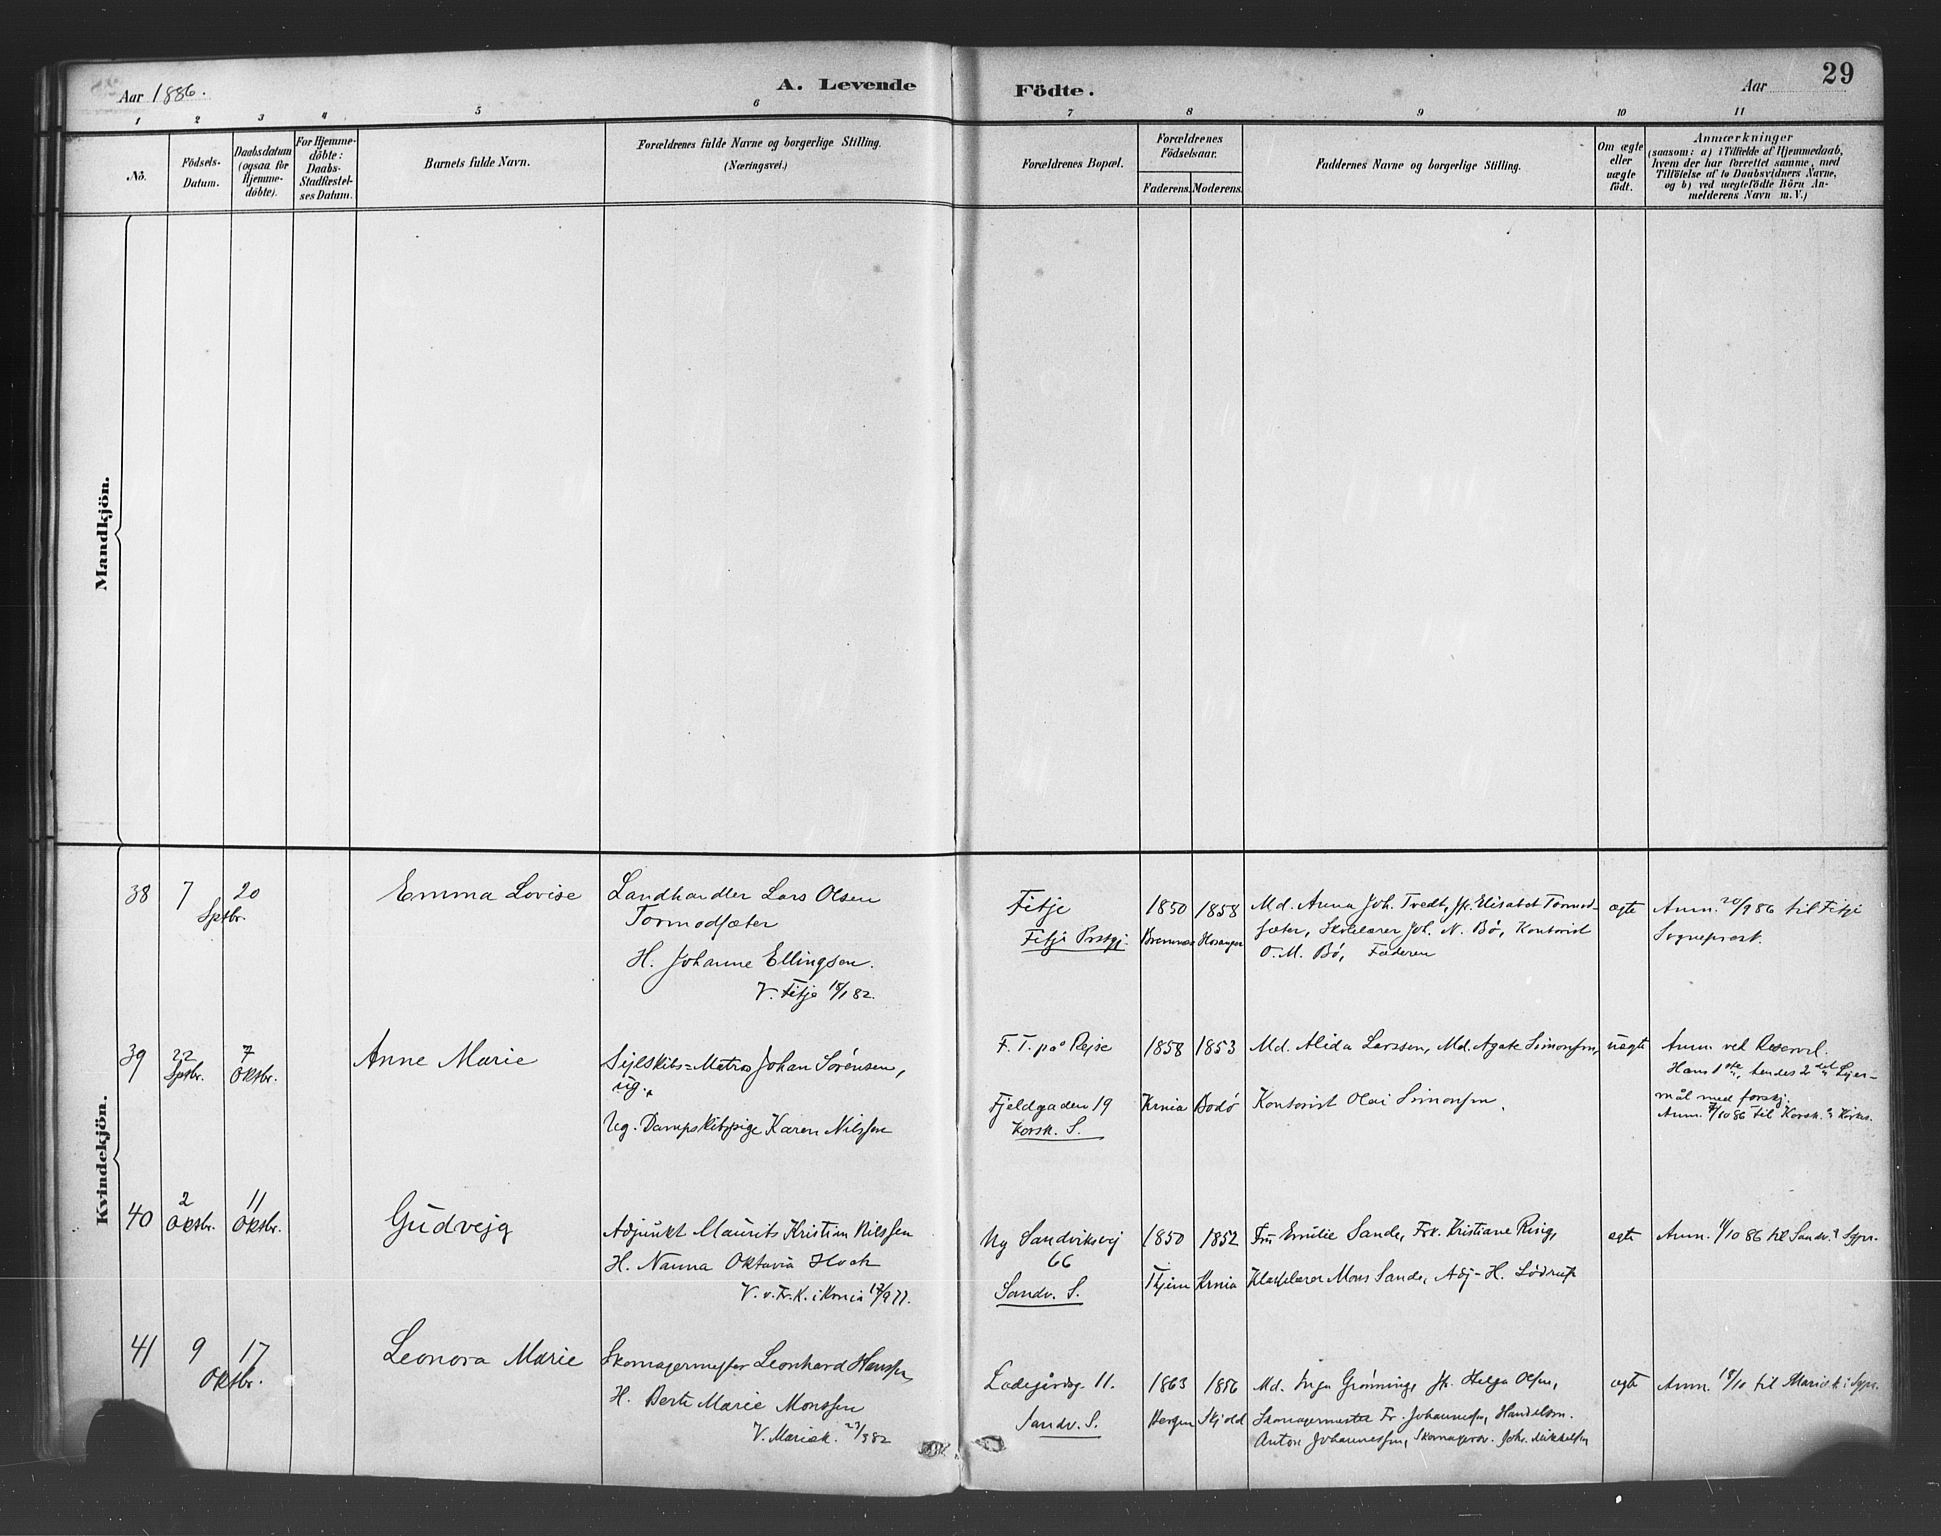 Aar 1886.
A. Levende Födte.
Aar
29
1 2 3 4 5 6 7 8 9 10 11
No.
Födsels-Datum.
Daabsdatum (ogsaa for Hjemme-döbte).
For Hjemme-döbte: Daabs-Stadfæstel-ses Datum.
Barnets fulde Navn.
Forældrenes fulde Navne og borgerlige Stilling. (Næringsvei.)
Forældrenes Bopæl.
Forældrenes Födselsaar.
Faderens. Moderens.
Faddernes Navne og borgerlige Stilling.
Om ægte eller uægte födt.
Anmærkninger
(saasom: a) i Tilfælde af Hjemmedaab,
hvem der har forrettet samme, med
Tilföielse af to Daabsvidners Navne,
og b) ved uægtefödte Börn An-
melderens Navn m. V.)
Mandkjön.
Kvindekjön.
38
7
20
Sptbr.
Emma Lovise
Landhandler Lars Olsen
Tormodsæter
H. Johanne Ellingsen.
V. Fitje 18/1 82.
Fitje
Fitje Prstgj.
1850
Bremnæs
1858
Hosanger
Md. Anna Joh. Tvedt, Jfr. Elisabet Tormod-
sæter, Skolelærer Joh. N. Bö, Kontorist
O. M. Bö, Faderen
ægte
Anm. 20/9 86 til Fitje
Sogneprest.
39
22
Sptbr.
7
Oktbr.
Anne Marie
Sejlskibs=Matros Johan Sørensen,
ug.
Ug. Dampskibspige Karen Nilssen
F. T. på Rejse
Fjeldgaden 19
Korsk. S.
1858
Krnia
1853
Bodø
Md. Alida Larssen, Md. Agate Simonsen,
Kontorist Olai Simonsen.
uægte
Anm. ved
Hans 1ste, hendes 2det Lejer-
mål med forskj.
Anm. 7/10 86 til Korsk.s
40
2
Oktbr.
11
Oktbr.
Gudvejg
Adjunkt Maurits Kristian Nilssen
H. Nanna Oktavia Hoch
V. v. Fr. K. i Krnia 17/9 77.
Ny Sandviksvej
66
Sandv. S.
1850
Thjem
1852
Krnia
Fru Emilie Sande, Frk. Kristiane Ring,
Klasselærer Mons Sande, Adj. H. Lødrup
ægte
Anm. 11/10 86 til Sandv.s Sgpr.
41
9
17
Oktbr.
Leonora Marie
Skomagermester Leonhard Hanssen
H. Berte Marie Monssen
V. Mariak. 23/3 82
Ladegårdsg. 11.
Sandv. S.
1863
Bergen
1856
Skjold
Md. Inga Grønning, Jfr. Helga Olsen,
Skomagermester Fr. Johannessen, Handelsm.
Anton Johannessen, Skomagersv. Johs. Mikkelsen
ægte
Anm. 18/10 til Mariak.s Sgpr.